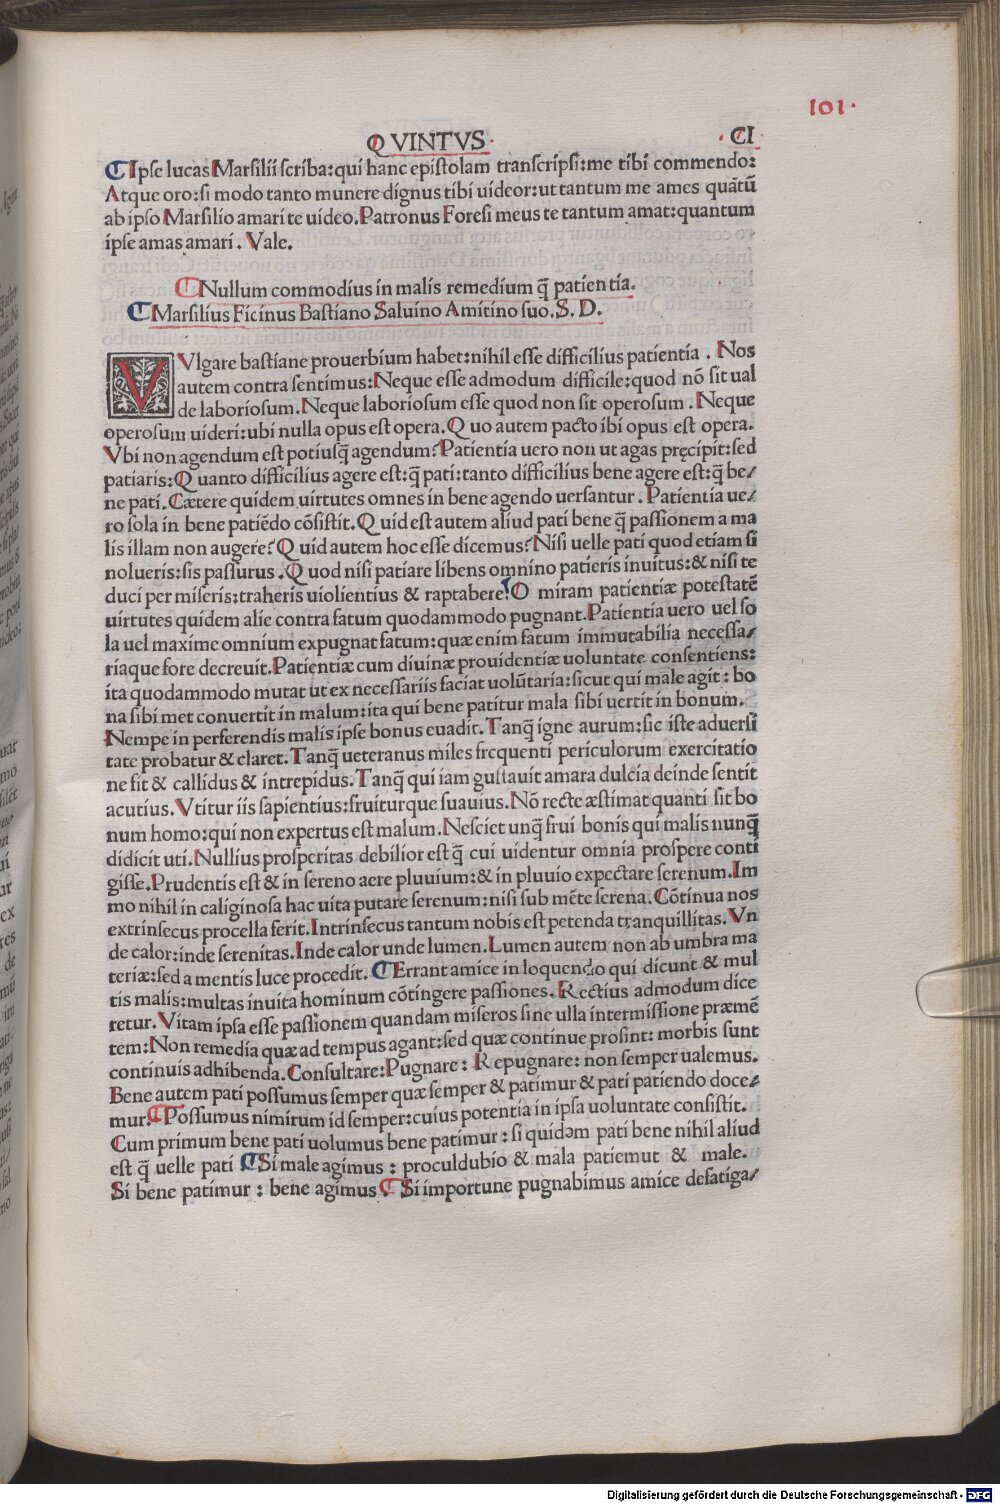 101.
QVINTVS. .CI
Ipse lucas Marsilii scriba:qui hanc epistolam transcripsi:me tibi commendo:
Atque oro:si modo tanto munere dignus tibi uideor:ut tantum me ames quātū
ab ipso Marsilio amari te uideo.Patronus Foresi meus te tantum amat:quantum
ipse amas amari. Vale.
Nullum commodius in malis remedium q̄ patientia.
Marsilius Ficinus Bastiano Saluino Amitino suo. S. D.
VVlgare bastiane prouerbium habet:nihil esse difficilius patientia. Nos
autem contra sentimus:Neque esse admodum difficile:quod nō sit ual
de laboriosum.Neque laboriosum esse quod non sit operosum. Neque
operosum uideri:ubi nulla opus est opera.Quo autem pacto ibi opus est opera.
Vbi non agendum est potiusq̄ agendum?Patientia uero non ut agas pręcipit:sed
patiaris:Quanto difficilius agere est:q̄ pati:tanto difficilius bene agere est:q̄ be/
ne pati. Cætere quidem uirtutes omnes in bene agendo uersantur. Patientia ue/
ro sola in bene patiēdo cōsistit.Quid est autem aliud pati bene q̄ passionem a ma
lis illam non augere?Quid autem hoc esse dicemus?Nisi uelle pati quod etiam si
nolueris:sis passurus .Quod nisi patiare libens omnino patieris inuitus:& nisi te
duci per miseris:traheris uiolientius & raptabere?O miram patientiæ potestatē
uirtutes quidem alie contra fatum quodammodo pugnant.Patientia uero uel so
la uel maxime omnium expugnat fatum:quæ enim fatum immutabilia necessa/
riaque fore decreuit.Patientiæ cum diuinæ prouidentiæ uoluntate consentiens:
ita quodammodo mutat ut ex necessariis faciat uolūtaria:sicut qui male agit: bo
na sibi met conuertit in malum:ita qui bene patitur mala sibi uertit in bonum.
Nempe in perferendis malis ipse bonus euadit.Tanq̄ igne aurum:sic iste aduersi
tate probatur & claret. Tanq̄ ueteranus miles frequenti periculorum exercitatio
ne fit & callidus & intrepidus. Tanq̄ qui iam gustauit amara dulcia deinde sentit
acutius. Vtitur iis sapientius:fruiturque suauius.Nō recte æstimat quanti sit bo
num homo:qui non expertus est malum.Nesciet unq̄ frui bonis qui malis nunq̄
didicit uti.Nullius prosperitas debilior est q̄ cui uidentur omnia prospere conti
gisse.Prudentis est & in sereno aere pluuium:& in pluuio expectare serenum.Im
mo nihil in caliginosa hac uita putare serenum:nisi sub mēte serena.Cōtinua nos
extrinsecus procella ferit.Intrinsecus tantum nobis est petenda tranquillitas.Vn
de calor:inde serenitas.Inde calor unde lumen.Lumen autem non ab umbra ma
teriæ:sed a mentis luce procedit. Errant amice in loquendo qui dicunt & mul
tis malis:multas inuita hominum cōtingere passiones.Rectius admodum dice
retur.Vitam ipsa esse passionem quandam miseros sine ulla intermissione præmē
tem:Non remedia quæ ad tempus agant:sed quæ continue prosint: morbis sunt
continuis adhibenda.Consultare:Pugnare: Repugnare: non semper ualemus.
Bene autem pati possumus semper quæ semper & patimur & pati patiendo doce/
mur. Possumus nimirum id semper:cuius potentia in ipsa uoluntate consistit.
Cum primum bene pati uolumus bene patimur: si quidəm pati bene nihil aliud
est q̄ uelle pati Si male agimus : proculdubio & mala patiemut & male.
Si bene patimur : bene agimus Si importune pugnabimus amice defatiga/
Digitalisierung gefördert durch die Deutsche Forschungsgemeinschaft - DFG